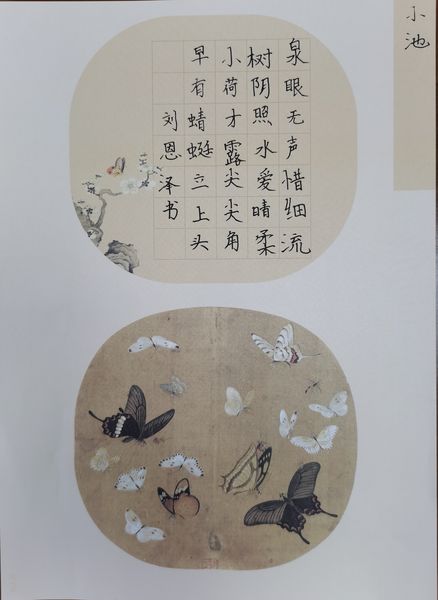 小池
泉眼无声惜细流
树阴照水爱晴柔
小荷才露尖尖角
早有蜻蜓立上头
刘恩泽书